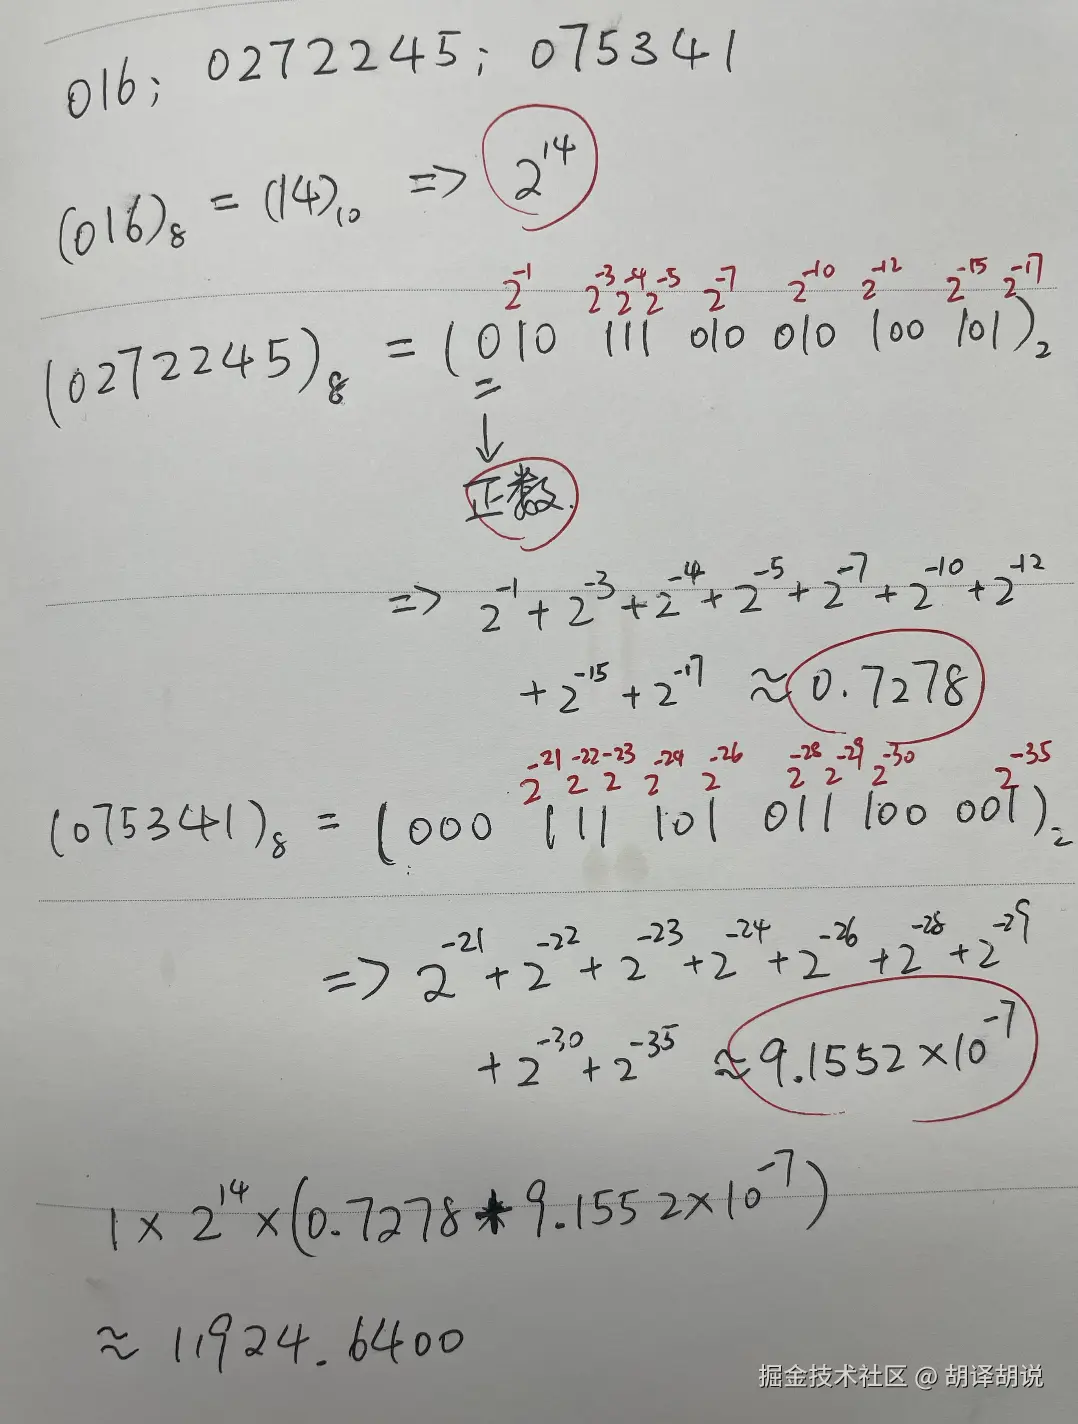 016; 0272245; 075341
(016)₈ = (14)₁₀ => 2¹⁴
2⁻¹ 2⁻³ 2⁻⁴ 2⁻⁵ 2⁻⁷ 2⁻¹⁰ 2⁻¹² 2⁻¹⁵ 2⁻¹⁷
(0272245)₈ = (010 111 010 010 100 101)₂
正数.
=> 2⁻¹ + 2⁻³ + 2⁻⁴ + 2⁻⁵ + 2⁻⁷ + 2⁻¹⁰ + 2⁻¹²
+ 2⁻¹⁵ + 2⁻¹⁷ ≈ 0.7278
2⁻²¹ 2⁻²² 2⁻²³ 2⁻²⁴ 2⁻²⁶ 2⁻²⁸ 2⁻²⁹ 2⁻³⁰ 2⁻³⁵
(075341)₈ = (000 111 101 011 100 001)₂
=> 2⁻²¹ + 2⁻²² + 2⁻²³ + 2⁻²⁴ + 2⁻²⁶ + 2⁻²⁸ + 2⁻²⁹
+ 2⁻³⁰ + 2⁻³⁵ ≈ 9.1552×10⁻⁷
1 × 2¹⁴ × (0.7278 * 9.1552×10⁻⁷)
≈ 11924.6400
掘金技术社区 @ 胡译胡说